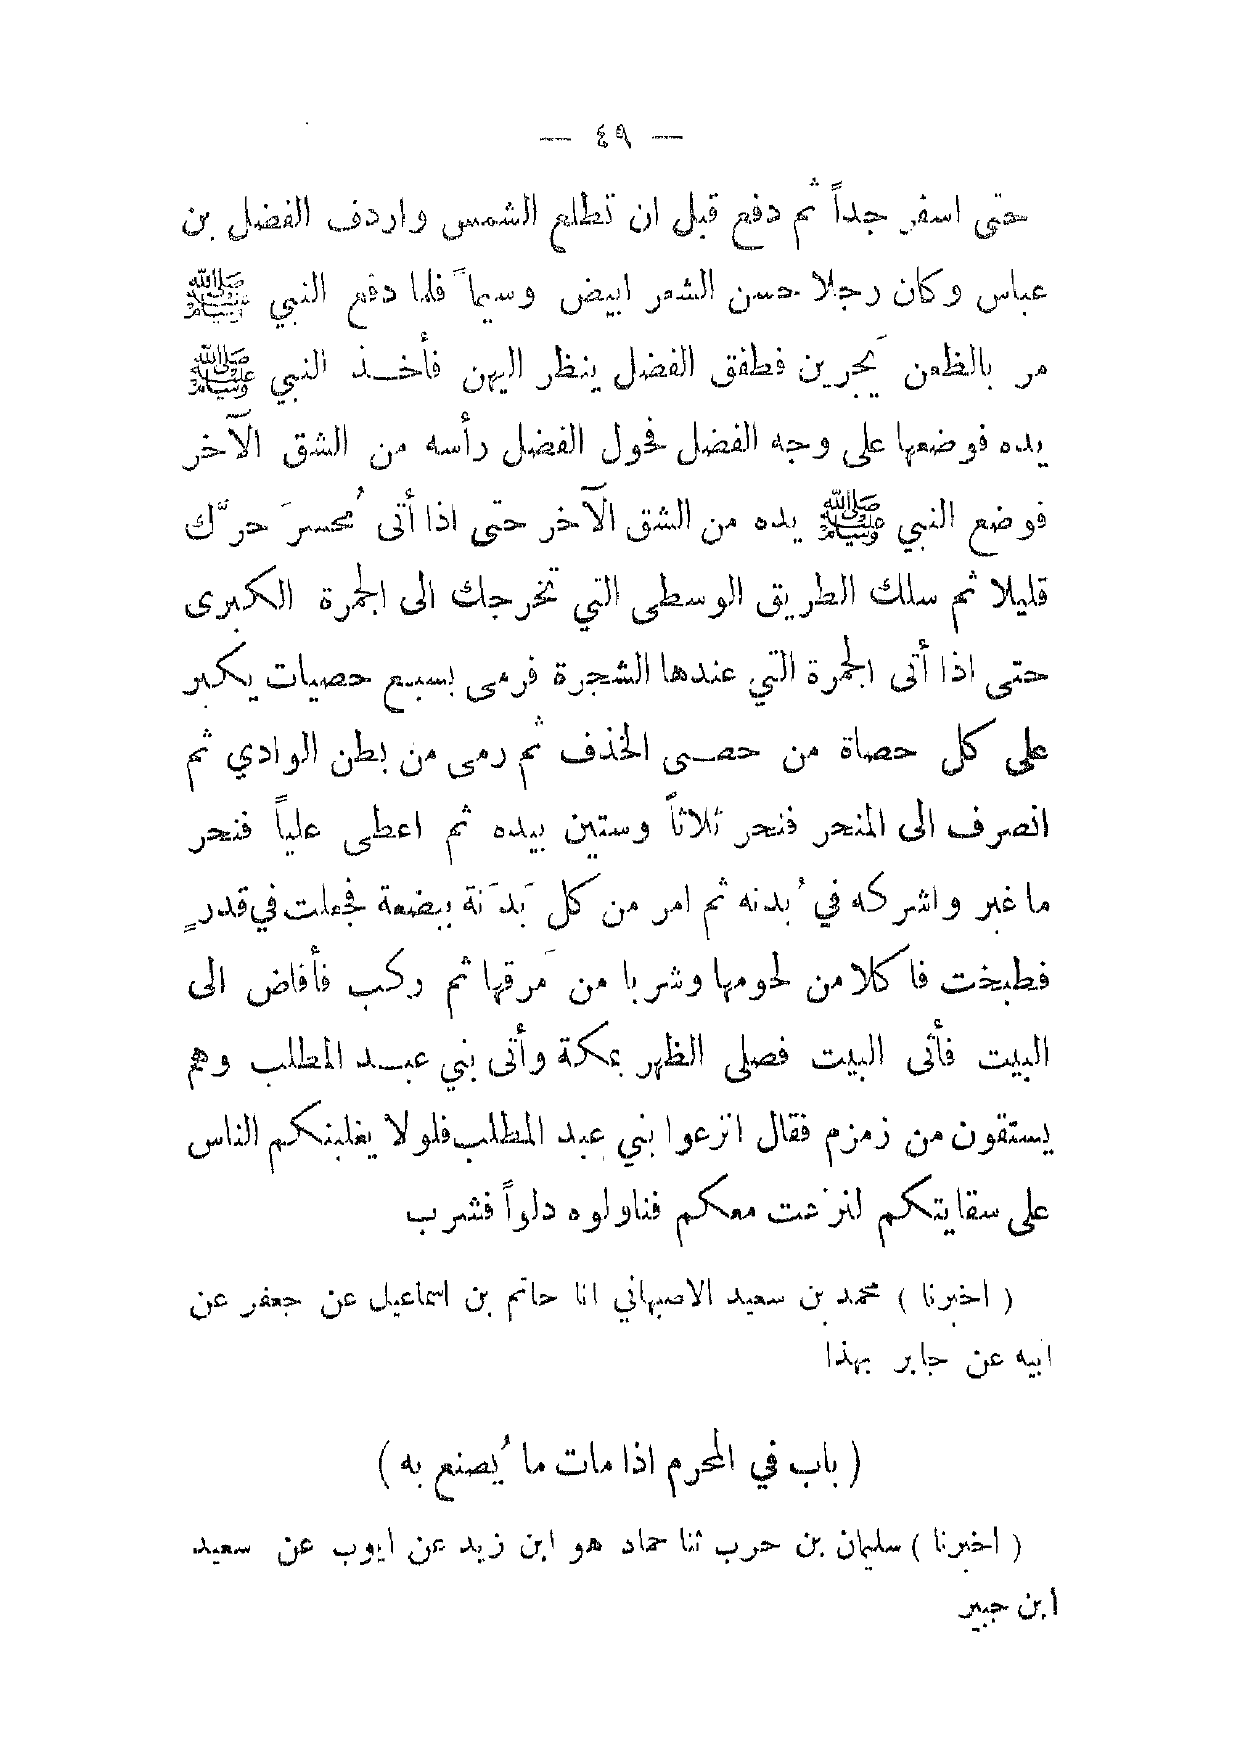 — ٤٩ —
حتى اسفر جداً ثم دفع قبل ان تطلع الشمس واردف الفضل بن
عباس وكان رجلا حسن الشعر ابيض وسيماً فلما دفع النبي ﷺ
مر بالظعن يَجرين فطفق الفضل ينظر اليهن فأخذ النبي ﷺ
يده فوضعها على وجه الفضل فحول الفضل رأسه من الشق الآخر
فوضع النبي ﷺ يده من الشق الآخر حتى اذا أتى مُحسرَ حرّك
قليلا ثم سلك الطريق الوسطى التي تخرجك الى الجمرة الكبرى
حتى اذا أتى الجمرة التي عندها الشجرة فرمى بسبع حصيات يكبر
على كل حصاة من حصى الخذف ثم رمى من بطن الوادي ثم
انصرف الى المنحر فنحر ثلاثاً وستين بيده ثم اعطى علياً فنحر
ما غبر واشركه في بُدنه ثم امر من كل بَدَنة ببضعة فجعلت في قدرٍ
فطبخت فاكلا من لحومها وشربا من مَرقها ثم ركب فأفاض الى
البيت فأتى البيت فصلى الظهر بمكة وأتى بني عبد المطلب وهم
يستقون من زمزم فقال انزعوا بني عبد المطلب فلولا يغلبنكم الناس
على سقايتكم لنزعت معكم فناولوه دلواً فشرب
( اخبرنا ) محمد بن سعيد الاصبهاني انا حاتم بن اسماعيل عن جعفر عن
ابيه عن جابر بهذا
( باب في المحرم اذا مات ما يُصنع به )
( اخبرنا ) سليمان بن حرب ثنا حماد هو ابن زيد عن ايوب عن سعيد
ابن جبير